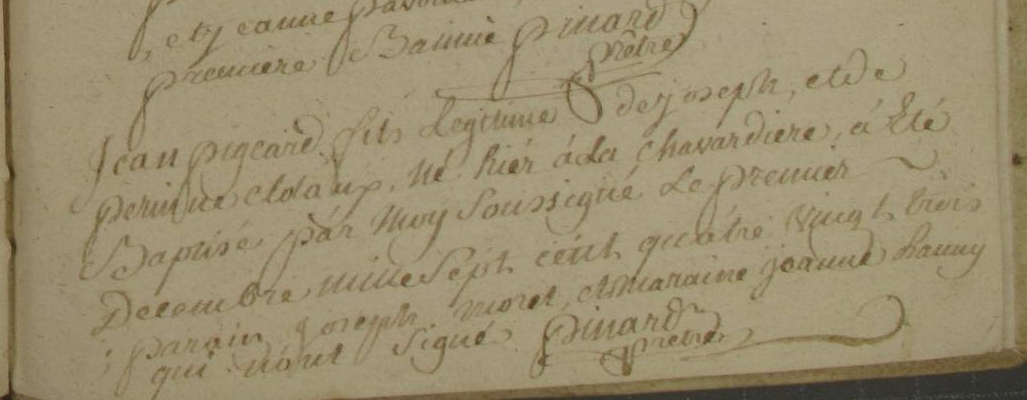 et jeanne
premiere Bannie pinard
prêtre
Jean pigeard fils Legitime de joseph, et de
perinne , né hiér á La Chavardiere, á Eté
Baptisé pár Moy Soussigné Le premier
Decembre mille Sept cent quátre vingt trois
; parain Joseph moret, et maraine jeanne hanny
qui n'ont Signé pinard
prêtre